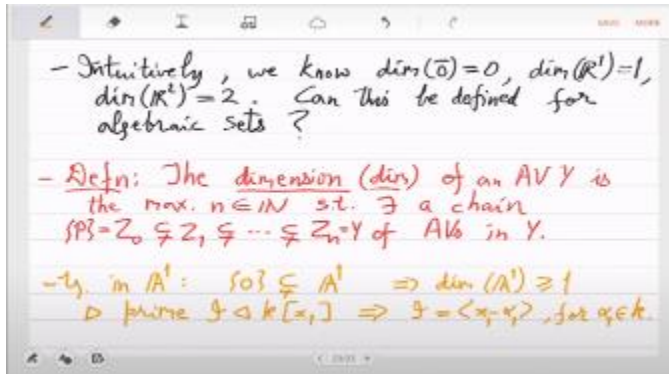 - Intuitively, we know dim(ō)=0, dim(ℝ¹)=1,
dim(ℝ²)=2. Can this be defined for
algebraic sets?
- Defn: The dimension (dim) of an AV Y is
the max. n∈ℕ s.t. ∃ a chain
{P}=Z₀ ⊊ Z₁ ⊊ ... ⊊ Zₙ=Y of AVs in Y.
- Eg. in 𝔸¹: {0} ⊊ 𝔸¹ ⇒ dim(𝔸¹) ≥ 1
▷ prime I ◁ k[x₁] ⇒ I = <x₁-α₁>, for α₁∈k.